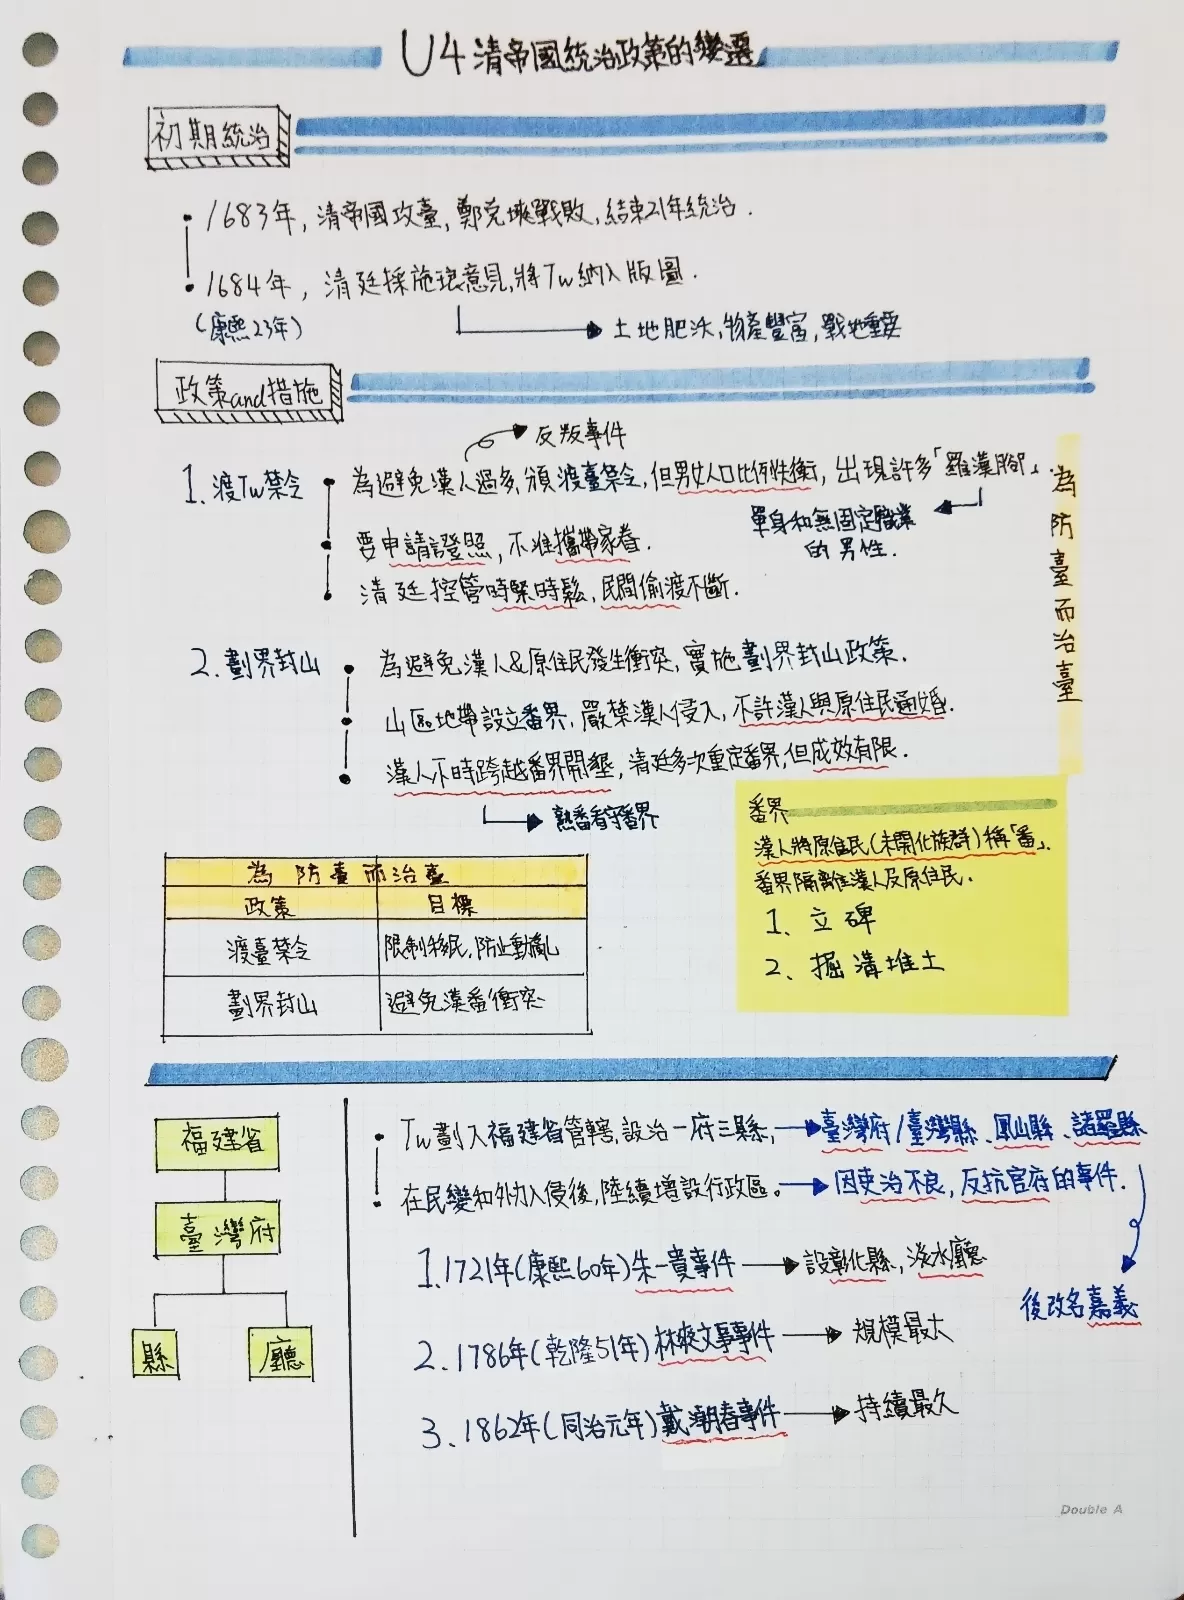 U4 清帝國統治政策的變遷
初期統治
1683年，清帝國攻臺，鄭克塽戰敗，結束21年統治．
1684年，清廷採施琅意見，將Tw納入版圖．
（康熙23年）
土地肥沃，物產豐富，戰地重要
政策and措施
反叛事件
1. 渡Tw禁令
為避免漢人過多，頒渡臺禁令，但男女人口比例失衡，出現許多「羅漢腳」．
單身和無固定職業
的男性．
要申請證照，不准攜帶家眷．
清廷控管時緊時鬆，民間偷渡不斷．
為防臺而治臺
2. 劃界封山
為避免漢人&原住民發生衝突，實施劃界封山政策．
山區地帶設立番界，嚴禁漢人侵入，不許漢人與原住民通婚．
漢人不時跨越番界開墾，清廷多次重定番界，但成效有限．
熟番看守番界
番界
漢人將原住民（未開化族群）稱「番」，
番界隔離漢人及原住民．
1、立碑
2、掘溝堆土
為防臺而治臺
政策 目標
渡臺禁令 限制移民，防止動亂
劃界封山 避免漢番衝突
福建省
臺灣府
縣 廳
Tw劃入福建省管轄，設治一府三縣，臺灣府/臺灣縣、鳳山縣、諸羅縣
後改名嘉義
在民變和外力入侵後，陸續增設行政區。因吏治不良，反抗官府的事件．
1. 1721年（康熙60年）朱一貴事件 設彰化縣，淡水廳
2. 1786年（乾隆51年）林爽文事事件 規模最大
3. 1862年（同治元年）戴潮春事件 持續最久
Double A